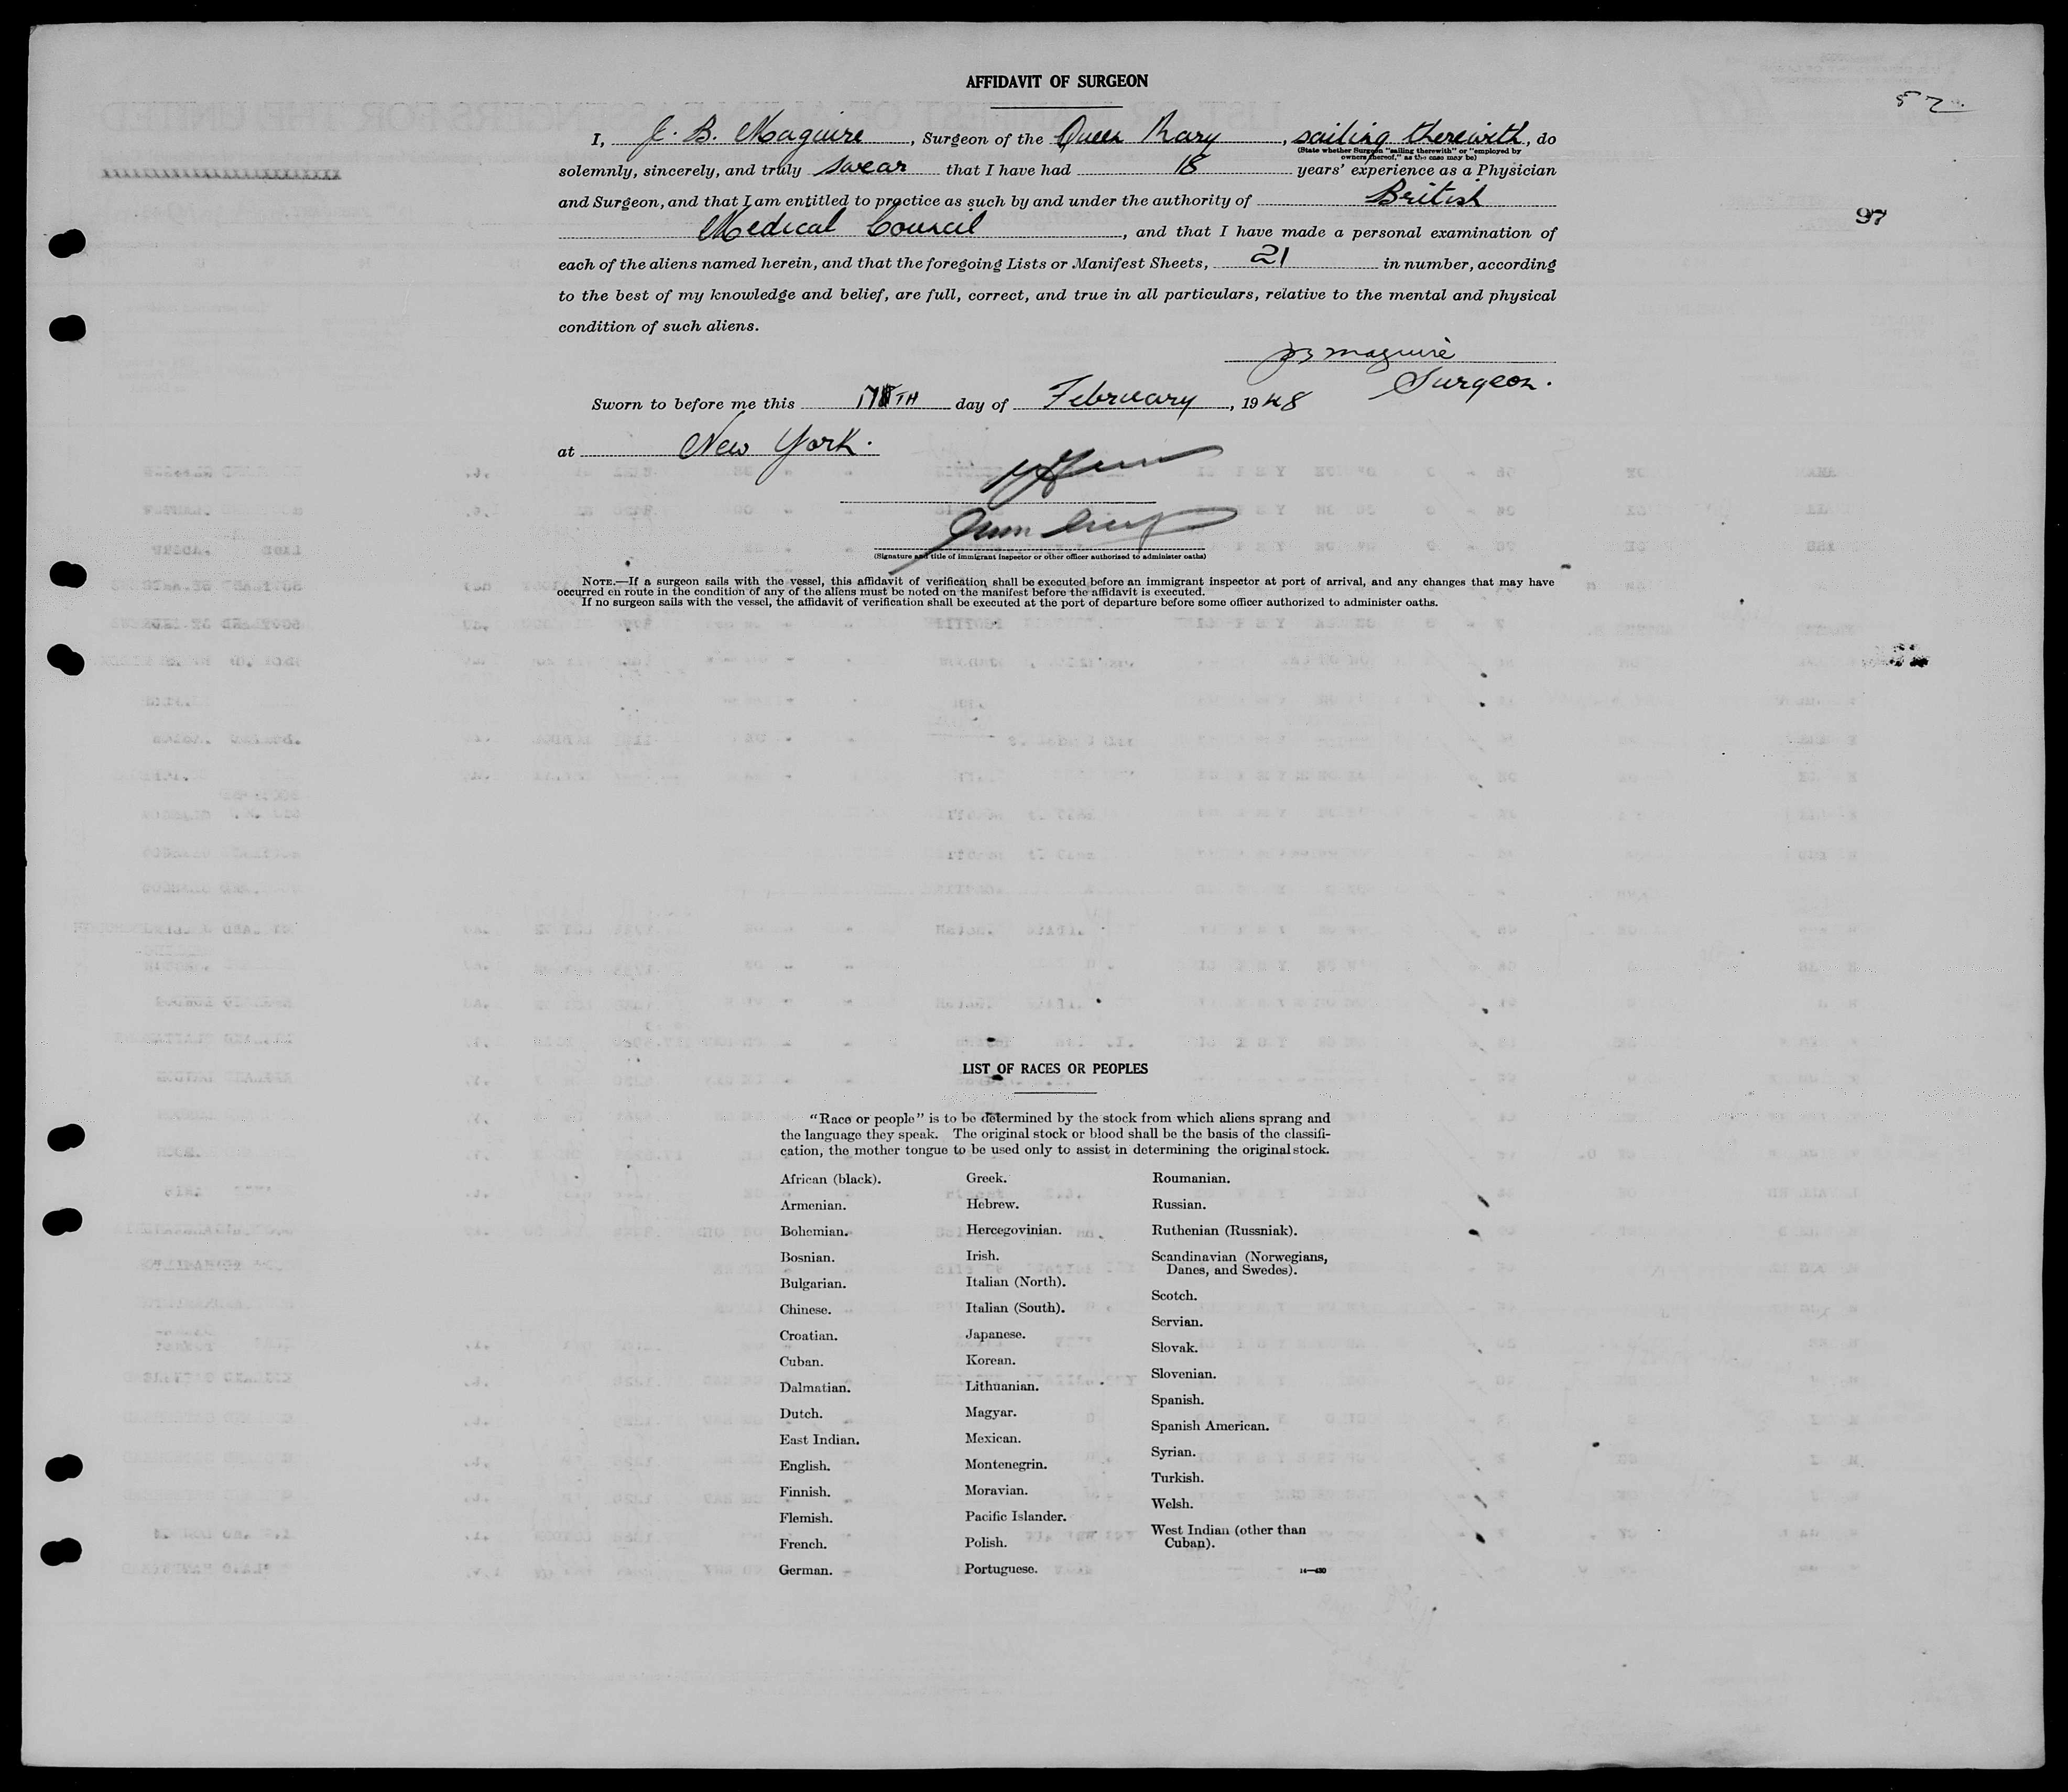 57
97
AFFIDAVIT OF SURGEON
I, J. B. Maguire, Surgeon of the Queen Mary, sailing therewith, do
(State whether Surgeon "sailing therewith" or "employed by
owners thereof," as the case may be)
solemnly, sincerely, and truly swear that I have had 18 years' experience as a Physician
and Surgeon, and that I am entitled to practice as such by and under the authority of British
Medical Council, and that I have made a personal examination of
each of the aliens named herein, and that the foregoing Lists or Manifest Sheets, 21 in number, according
to the best of my knowledge and belief, are full, correct, and true in all particulars, relative to the mental and physical
condition of such aliens.
JB Maguire
Surgeon.
Sworn to before me this TH day of February, 1948
at New York.
(Signature and title of immigrant inspector or other officer authorized to administer oaths)
NOTE.—If a surgeon sails with the vessel, this affidavit of verification shall be executed before an immigrant inspector at port of arrival, and any changes that may have
occurred en route in the condition of any of the aliens must be noted on the manifest before the affidavit is executed.
If no surgeon sails with the vessel, the affidavit of verification shall be executed at the port of departure before some officer authorized to administer oaths.
LIST OF RACES OR PEOPLES
"Race or people" is to be determined by the stock from which aliens sprang and
the language they speak. The original stock or blood shall be the basis of the classifi-
cation, the mother tongue to be used only to assist in determining the original stock.
African (black).
Armenian.
Bohemian.
Bosnian.
Bulgarian.
Chinese.
Croatian.
Cuban.
Dalmatian.
Dutch.
East Indian.
English.
Finnish.
Flemish.
French.
German.
Greek.
Hebrew.
Hercegovinian.
Irish.
Italian (North).
Italian (South).
Japanese.
Korean.
Lithuanian.
Magyar.
Mexican.
Montenegrin.
Moravian.
Pacific Islander.
Polish.
Portuguese.
Roumanian.
Russian.
Ruthenian (Russniak).
Scandinavian (Norwegians,
Danes, and Swedes).
Scotch.
Servian.
Slovak.
Slovenian.
Spanish.
Spanish American.
Syrian.
Turkish.
Welsh.
West Indian (other than
Cuban).
14—430